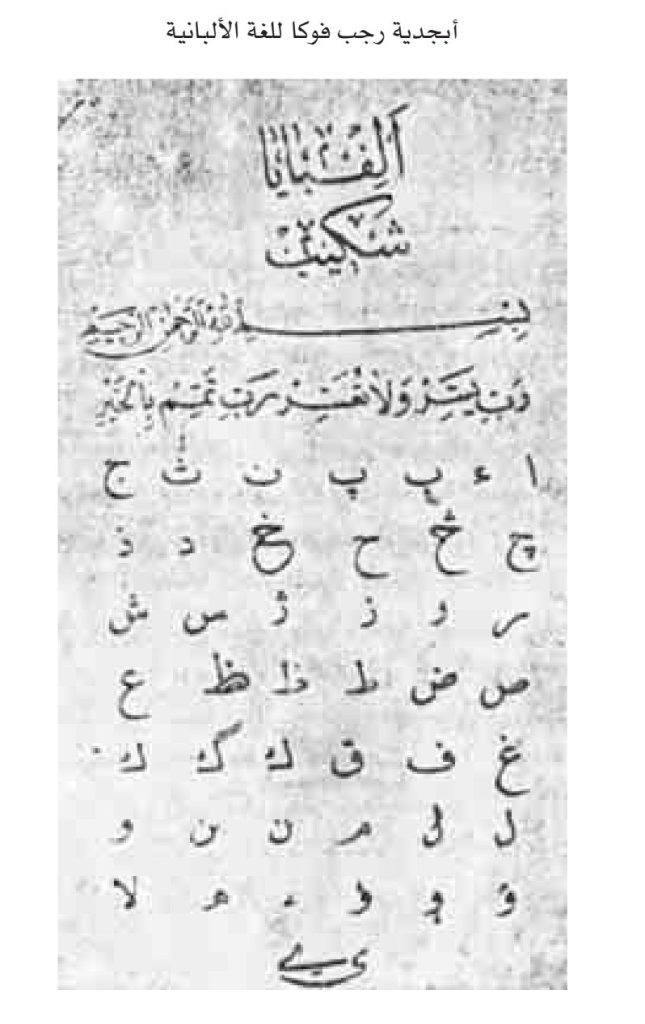 أبجدية رجب فوكا للغة الألبانية
اَلِفْبَايَا
شكيپ
بِسْمِ اللّٰهِ الرَّحْمٰنِ الرَّحِيمِ
رَبِّ يَسِّرْ وَلَا تُعَسِّرْ رَبِّ تَمِّمْ بِالْخَيْرِ
ا ء ب پ ت ث ج
چ ح خ د ذ
ر ز ژ س ش
ص ض ط ظ ع
غ ف ق ك گ ك
ل م ن و
ۇ و ه لا
ى ے